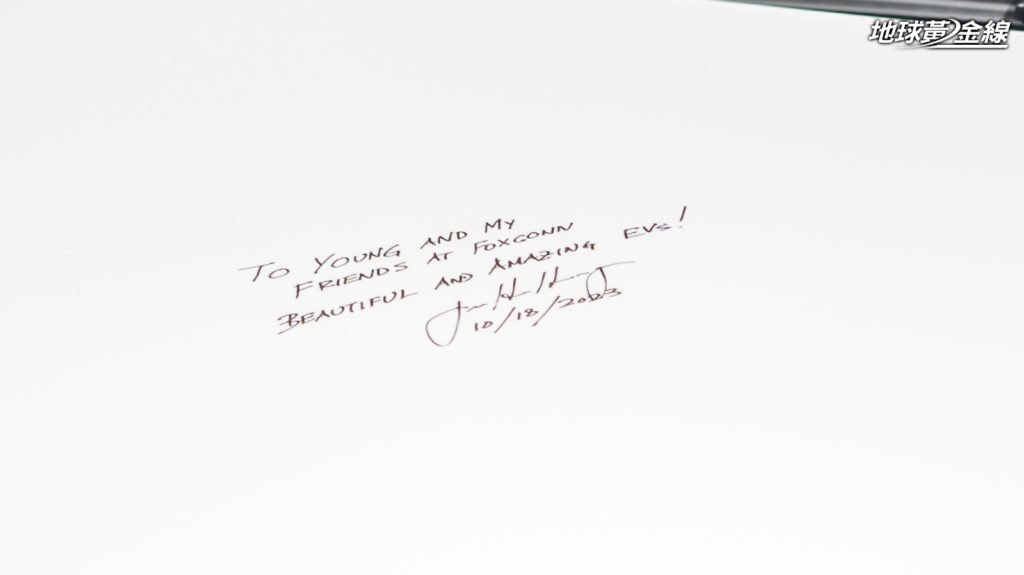 地球黃金線
TO YOUNG AND MY
FRIENDS AT FOXCONN
BEAUTIFUL AND AMAZING EVs!
10/18/2023